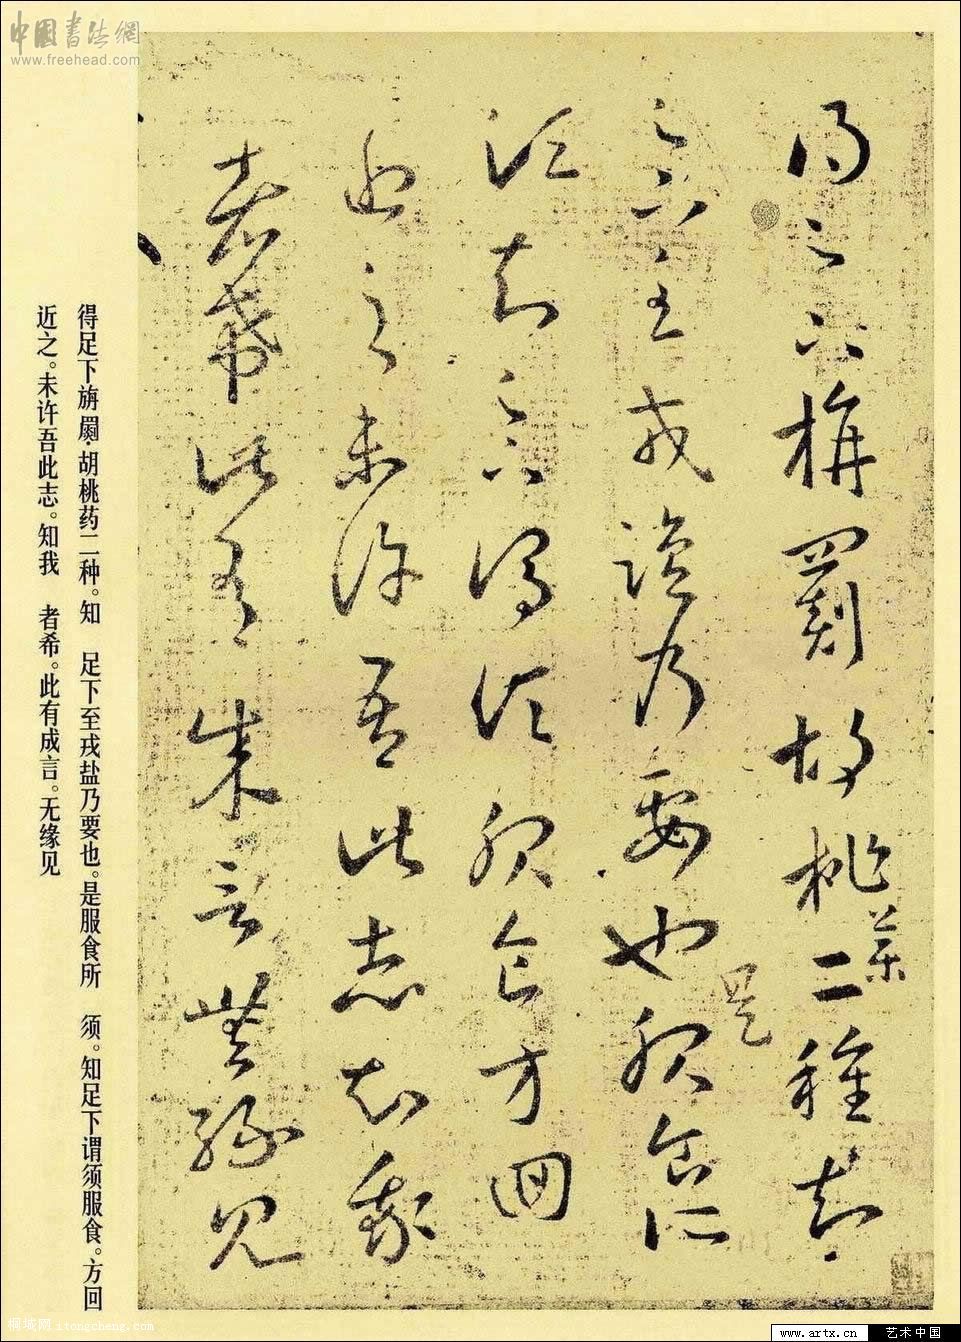 得足下旃罽胡桃药二种知
足下至戎盐乃要也是服食所
须知足下谓须服食方回
近之未许吾此志知我
者希此有成言无缘见
得足下旃罽·胡桃药二种。知　足下至戎盐乃要也。是服食所　须。知足下谓须服食。方回
近之。未许吾此志。知我　者希。此有成言。无缘见
中国书法網
www.freehead.com
桐城网 itongcheng.com
www.artx.cn 艺术中国